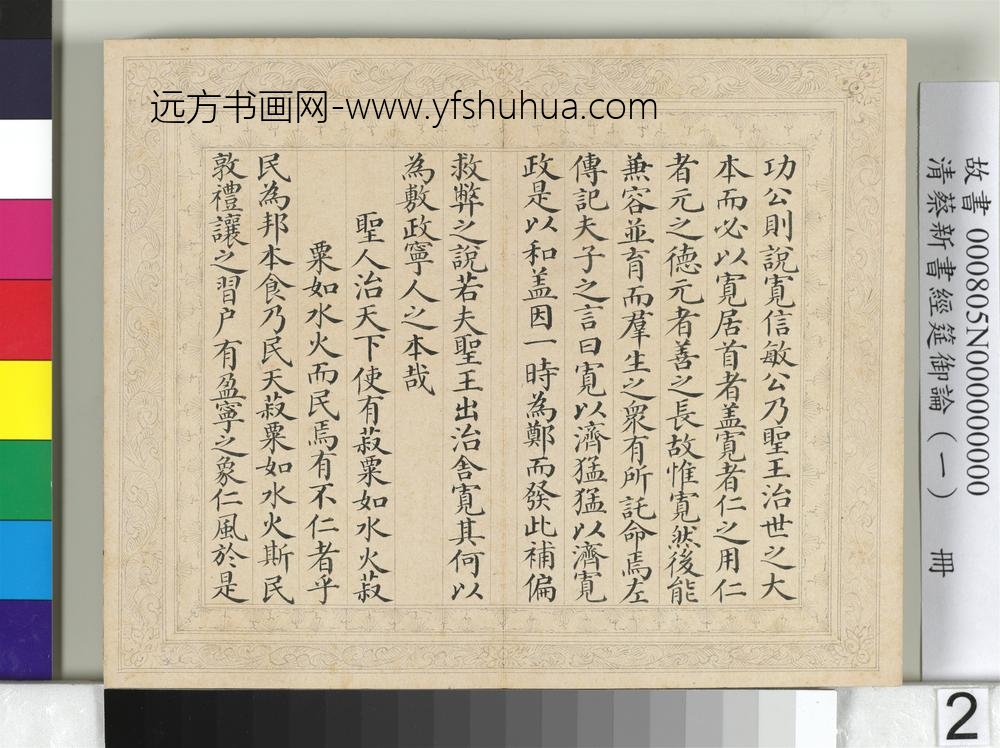 远方书画网-www.yfshuhua.com
功公則說寬信敏公乃聖王治世之大
本而必以寬居首者盖寬者仁之用仁
者元之德元者善之長故惟寬然後能
兼容並育而羣生之衆有所託命焉左
傳記夫子之言曰寬以濟猛猛以濟寬
政是以和盖因一時為鄭而發此補偏
救弊之說若夫聖王出治舍寬其何以
為敷政寧人之本哉
聖人治天下使有菽粟如水火菽
粟如水火而民焉有不仁者乎
民為邦本食乃民天菽粟如水火斯民
敦禮讓之習户有盈寧之象仁風於是
故書 000805N000000000
清蔡新書經筵御論（一） 冊
2